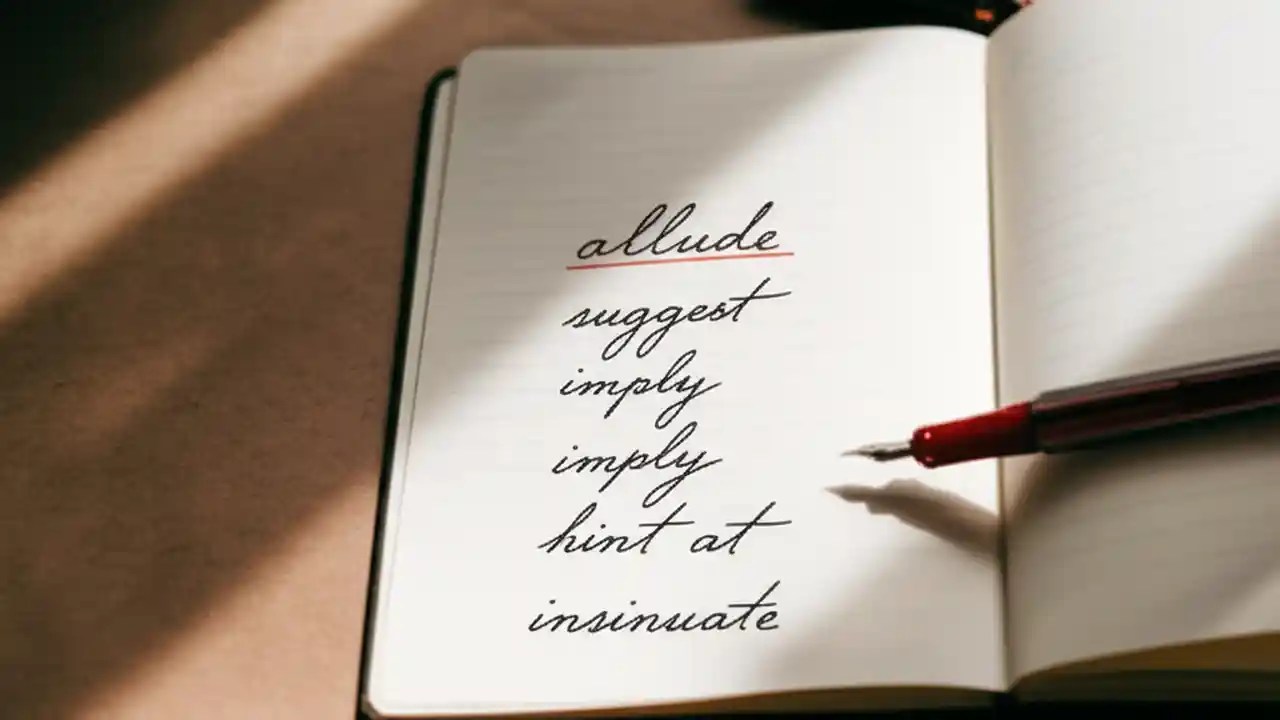 allude
suggest
imply
imply
hint at
insinuate